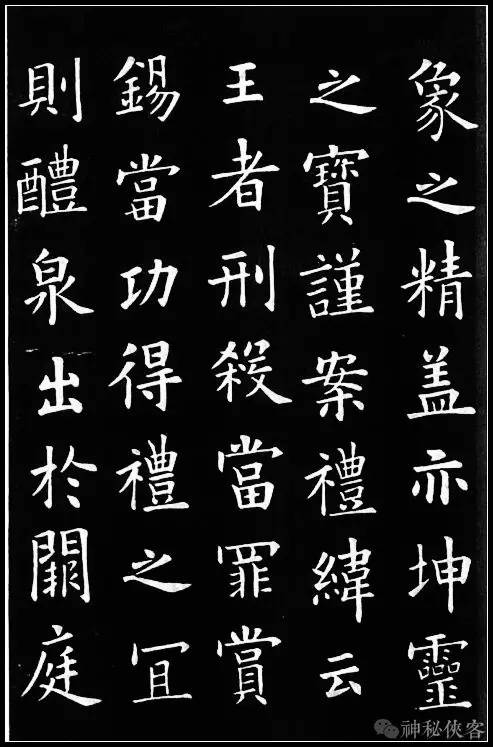 象之精盖亦坤靈
之寶謹案禮緯云
王者刑殺當罪賞
錫當功得禮之冝
則醴泉出於闕庭
神秘俠客